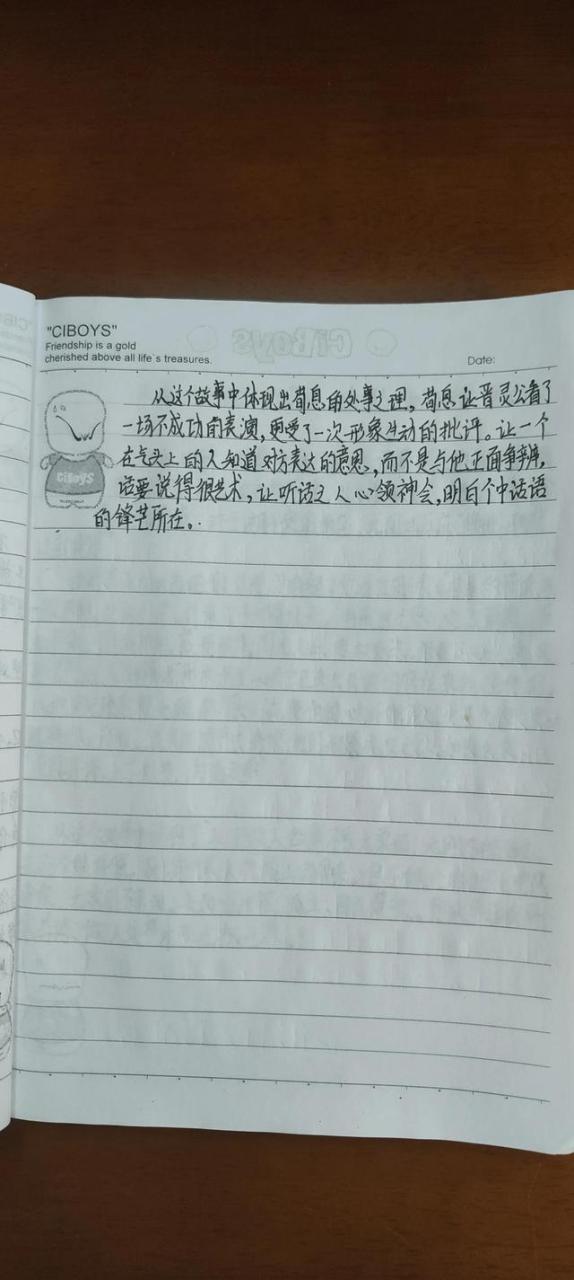 "CIBOYS"
Friendship is a gold
cherished above all life`s treasures.
Date:
从这个故事中体现出荀息的处事之理,荀息让晋灵公看了
一场不成功的表演,更受了一次形象生动的批评。让一个
在气头上的人知道对方表达的意思,而不是与他正面争辨,
话要说得很艺术,让听话之人心领神会,明白个中话语
的锋芒所在。
CiBOYS